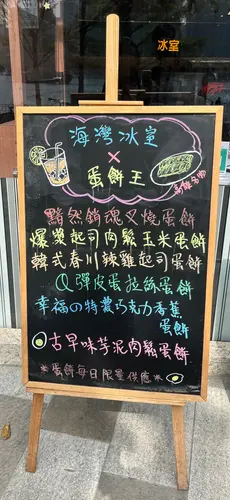 冰室
海灣冰室
×
蛋餅王
黯然銷魂叉燒蛋餅
爆漿起司肉鬆玉米蛋餅
韓式春川辣雞起司蛋餅
Q彈皮蛋拉絲蛋餅
幸福の特濃巧克力香蕉
蛋餅
古早味芋泥肉鬆蛋餅
※蛋餅每日限量供應※